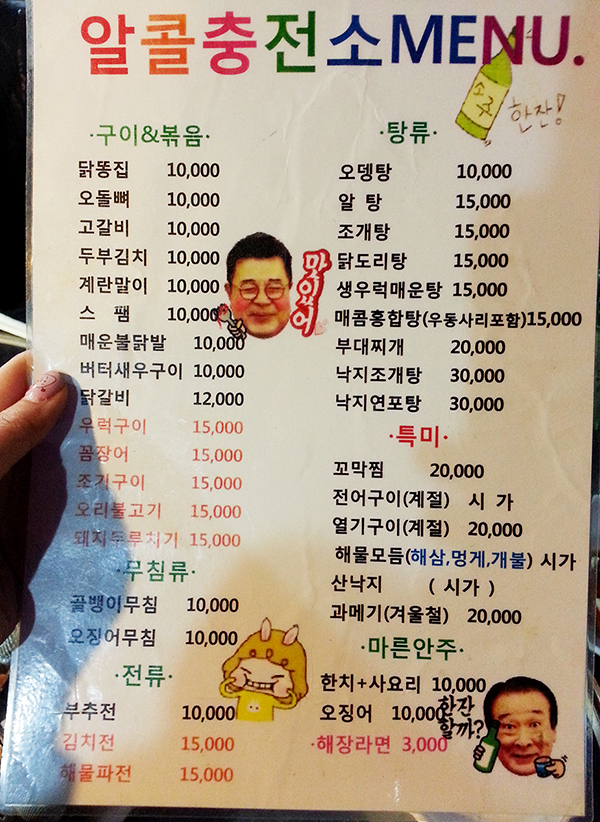 알콜충전소MENU.
소주
한잔!
·구이&볶음·
닭똥집 10,000
오돌뼈 10,000
고갈비 10,000
두부김치 10,000
계란말이 10,000
스 팸 10,000
매운불닭발 10,000
버터새우구이 10,000
닭갈비 12,000
우럭구이 15,000
꼼장어 15,000
조기구이 15,000
오리불고기 15,000
돼지두루치기 15,000
맛이쓰어
·무침류·
골뱅이무침 10,000
오징어무침 10,000
·전류·
부추전 10,000
김치전 15,000
해물파전 15,000
·탕류·
오뎅탕 10,000
알 탕 15,000
조개탕 15,000
닭도리탕 15,000
생우럭매운탕 15,000
매콤홍합탕(우동사리포함)15,000
부대찌개 20,000
낙지조개탕 30,000
낙지연포탕 30,000
·특미·
꼬막찜 20,000
전어구이(계절) 시 가
열기구이(계절) 20,000
해물모듬(해삼,멍게,개불) 시가
산낙지 ( 시가 )
과메기(겨울철) 20,000
·마른안주·
한치+사요리 10,000
오징어 10,000
·해장라면 3,000
한잔
할까?